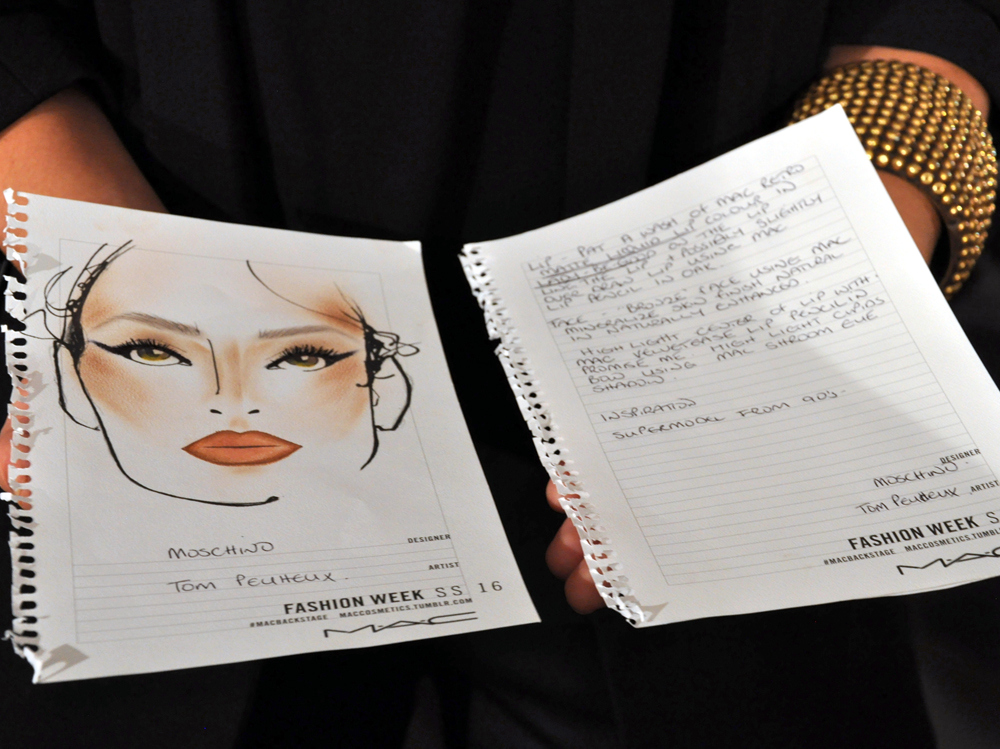 MOSCHINO
DESIGNER
TOM PEUHEUX.
ARTIST
FASHION WEEK SS 16
#MACBACKSTAGE MACCOSMETICS.TUMBLR.COM
MAC
LIP - PAT A WASH OF MAC RETRO
MATTE LIQUID LIP COLOUR IN
ON THE LIP
LINE THE LIP + POSSIBLY SLIGHTLY
OVER DRAW LIP USING MAC
LIP PENCIL IN OAK.
FACE - BRONZE FACE USING MAC
MINERALIZE SKIN FINISH NATURAL
IN NATURALLY ENHANCED.
HIGH LIGHT CENTER OF LIP WITH
MAC VELVETEASE LIP PENCIL IN
PROMISE ME. HIGH LIGHT CUPIDS
BOW USING MAC SHROOM EYE
SHADOW.
INSPIRATION
SUPERMODEL FROM 90'S.
DESIGNER
MOSCHINO.
TOM PEUHEUX ARTIST
FASHION WEEK SS
#MACBACKSTAGE MACCOSMETICS.TUMBL
MAC